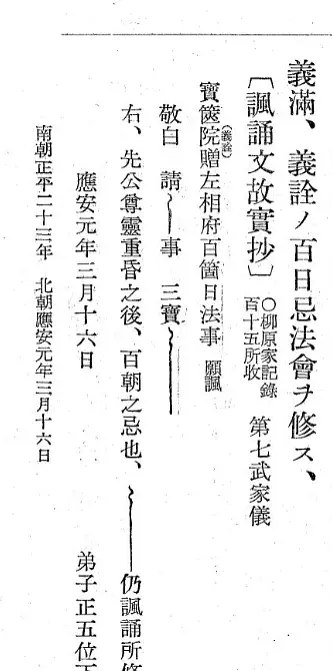 義滿、義詮ノ百日忌法會ヲ修ス、
〔諷誦文故實抄〕 ○柳原家記錄百十五所收 第七武家儀
寶篋院(義詮)贈左相府百箇日法事 願諷
敬白 請〜事 三寶〜
右、先公尊靈重昏之後、百朝之忌也、〜仍諷誦所修
應安元年三月十六日 弟子正五位下
南朝正平二十三年 北朝應安元年三月十六日